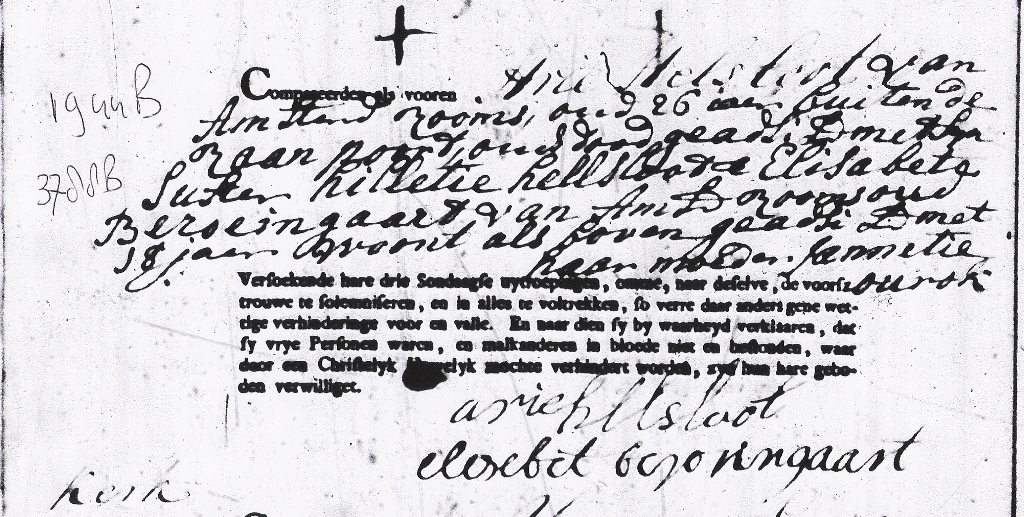 Compareerden als vooren Arie Helsloot van
1944B
Amsterd rooms, oud 26 jaar buiten de
Raan poort, ouds dood geadsi: D met syn
37888B
Suster hilletie hellsloot & Elisabete
Beroeingaart van Amsd rooms oud
18 jaar woont als boven geadsi: D met
haar moeder Jannetie
Versoekende hare drie Sondaagse uytroepingen, omme, naar deselve, de voorsz.
trouwe te solemniseren, en in alles te voltrekken, so verre daar anders gene wet-
tige verhinderinge voor en valle. En naar dien sy by waarheyd verklaaren, dat
sy vrye Persoonen waren, en malkanderen in bloede niet en bestonden, waar
door een Christelyk Houwelyk mochte verhindert worden, zyn hun hare gebo-
den verwilliget.
arie hellsloot
elesebet beroeingaart
kerk